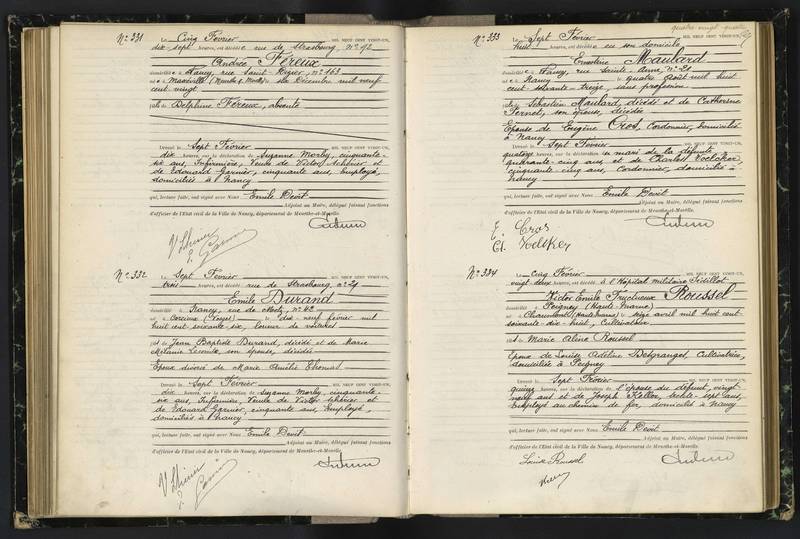 N° 331 Le Cinq Février MIL NEUF CENT VINGT-UN,
dix sept heures, est décédée rue de Strasbourg, n° 92
Andrée Féreux
domiciliée à Nancy, rue Saint-Dizier, n° 163
née à Maxéville (Meurthe & Moselle) le six Décembre mil neuf
cent-vingt
fille de Delphine Féreux, absente
Dressé le Sept Février MIL NEUF CENT VINGT-UN,
dix heures, sur la déclaration de Suzanne Morby, cinquante-
six ans, Infirmière, Veuve de Victor
de Edouard Garnier, cinquante ans, employé,
domiciliés à Nancy
qui, lecture faite, ont signé avec Nous Emile Devit
Adjoint au Maire, délégué faisant fonctions
d'officier de l'Etat civil de la Ville de Nancy, département de Meurthe-et-Moselle.
N° 332 Le Sept Février MIL NEUF CENT VINGT-UN,
trois heures, est décédé rue de Strasbourg, n° 24
Emile Durand
domicilié à Nancy, rue de Metz, n°
né à Corcieux (Vosges) le dix-neuf février mil
huit cent soixante-six, loueur de voitures
fils de Jean Baptiste Durand, décédé et de Marie
Mélanie Lecomte, son épouse, décédée
Epoux divorcé de Marie Amélie Thomas
Dressé le Sept Février MIL NEUF CENT VINGT-UN,
dix heures, sur la déclaration de Suzanne Morby, cinquante-
six ans, Infirmière, Veuve de Victor et
de Edouard Garnier, cinquante ans, employé,
domiciliés à Nancy
qui, lecture faite, ont signé avec Nous Emile Devit
Adjoint au Maire, délégué faisant fonctions
d'officier de l'Etat civil de la Ville de Nancy, département de Meurthe-et-Moselle.
quatre vingt quatre
N° 333 Le Sept Février MIL NEUF CENT VINGT-UN,
huit heures, est décédée en son domicile
Ernestine Maulard
domiciliée à Nancy, rue Sainte Anne, n° 20
née à Nancy le quatre Août mil huit
cent soixante-treize, sans profession
fille de Sébastien Maulard, décédé et de Catherine
Pernot, son épouse, décédée
Epouse de Eugène Cros, Cordonnier, domicilié
à Nancy
Dressé le Sept Février MIL NEUF CENT VINGT-UN,
quatorze heures, sur la déclaration du mari de la défunte,
quarante-cinq ans et de Charles Voelcker,
cinquante cinq ans, Cordonnier, domicilié à
Nancy
qui, lecture faite, ont signé avec Nous Emile Devit
Adjoint au Maire, délégué faisant fonctions
d'officier de l'Etat civil de la Ville de Nancy, département de Meurthe-et-Moselle.
E. Cros
Ch. Voelcker
N° 334 Le Cinq Février MIL NEUF CENT VINGT-UN,
vingt deux heures, est décédé à l'Hôpital militaire Sédillot
Victor Emile Fructueux Roussel
domicilié à Poigney (Haute Marne)
né à Chaumont (Haute Marne) le seize avril mil huit cent
soixante-dix-huit, Cultivateur
fils de Marie Aline Roussel
Epoux de Louise Adeline Desgranges, Cultivatrice,
domiciliée à Poigney
Dressé le Sept Février MIL NEUF CENT VINGT-UN,
quinze heures, sur la déclaration de l'épouse du défunt, vingt-
neuf ans et de Joseph Keller, trente-sept ans,
Employé au chemin de fer, domicilié à Nancy
qui, lecture faite, ont signé avec Nous Emile Devit
Adjoint au Maire, délégué faisant fonctions
d'officier de l'Etat civil de la Ville de Nancy, département de Meurthe-et-Moselle.
Louise Roussel